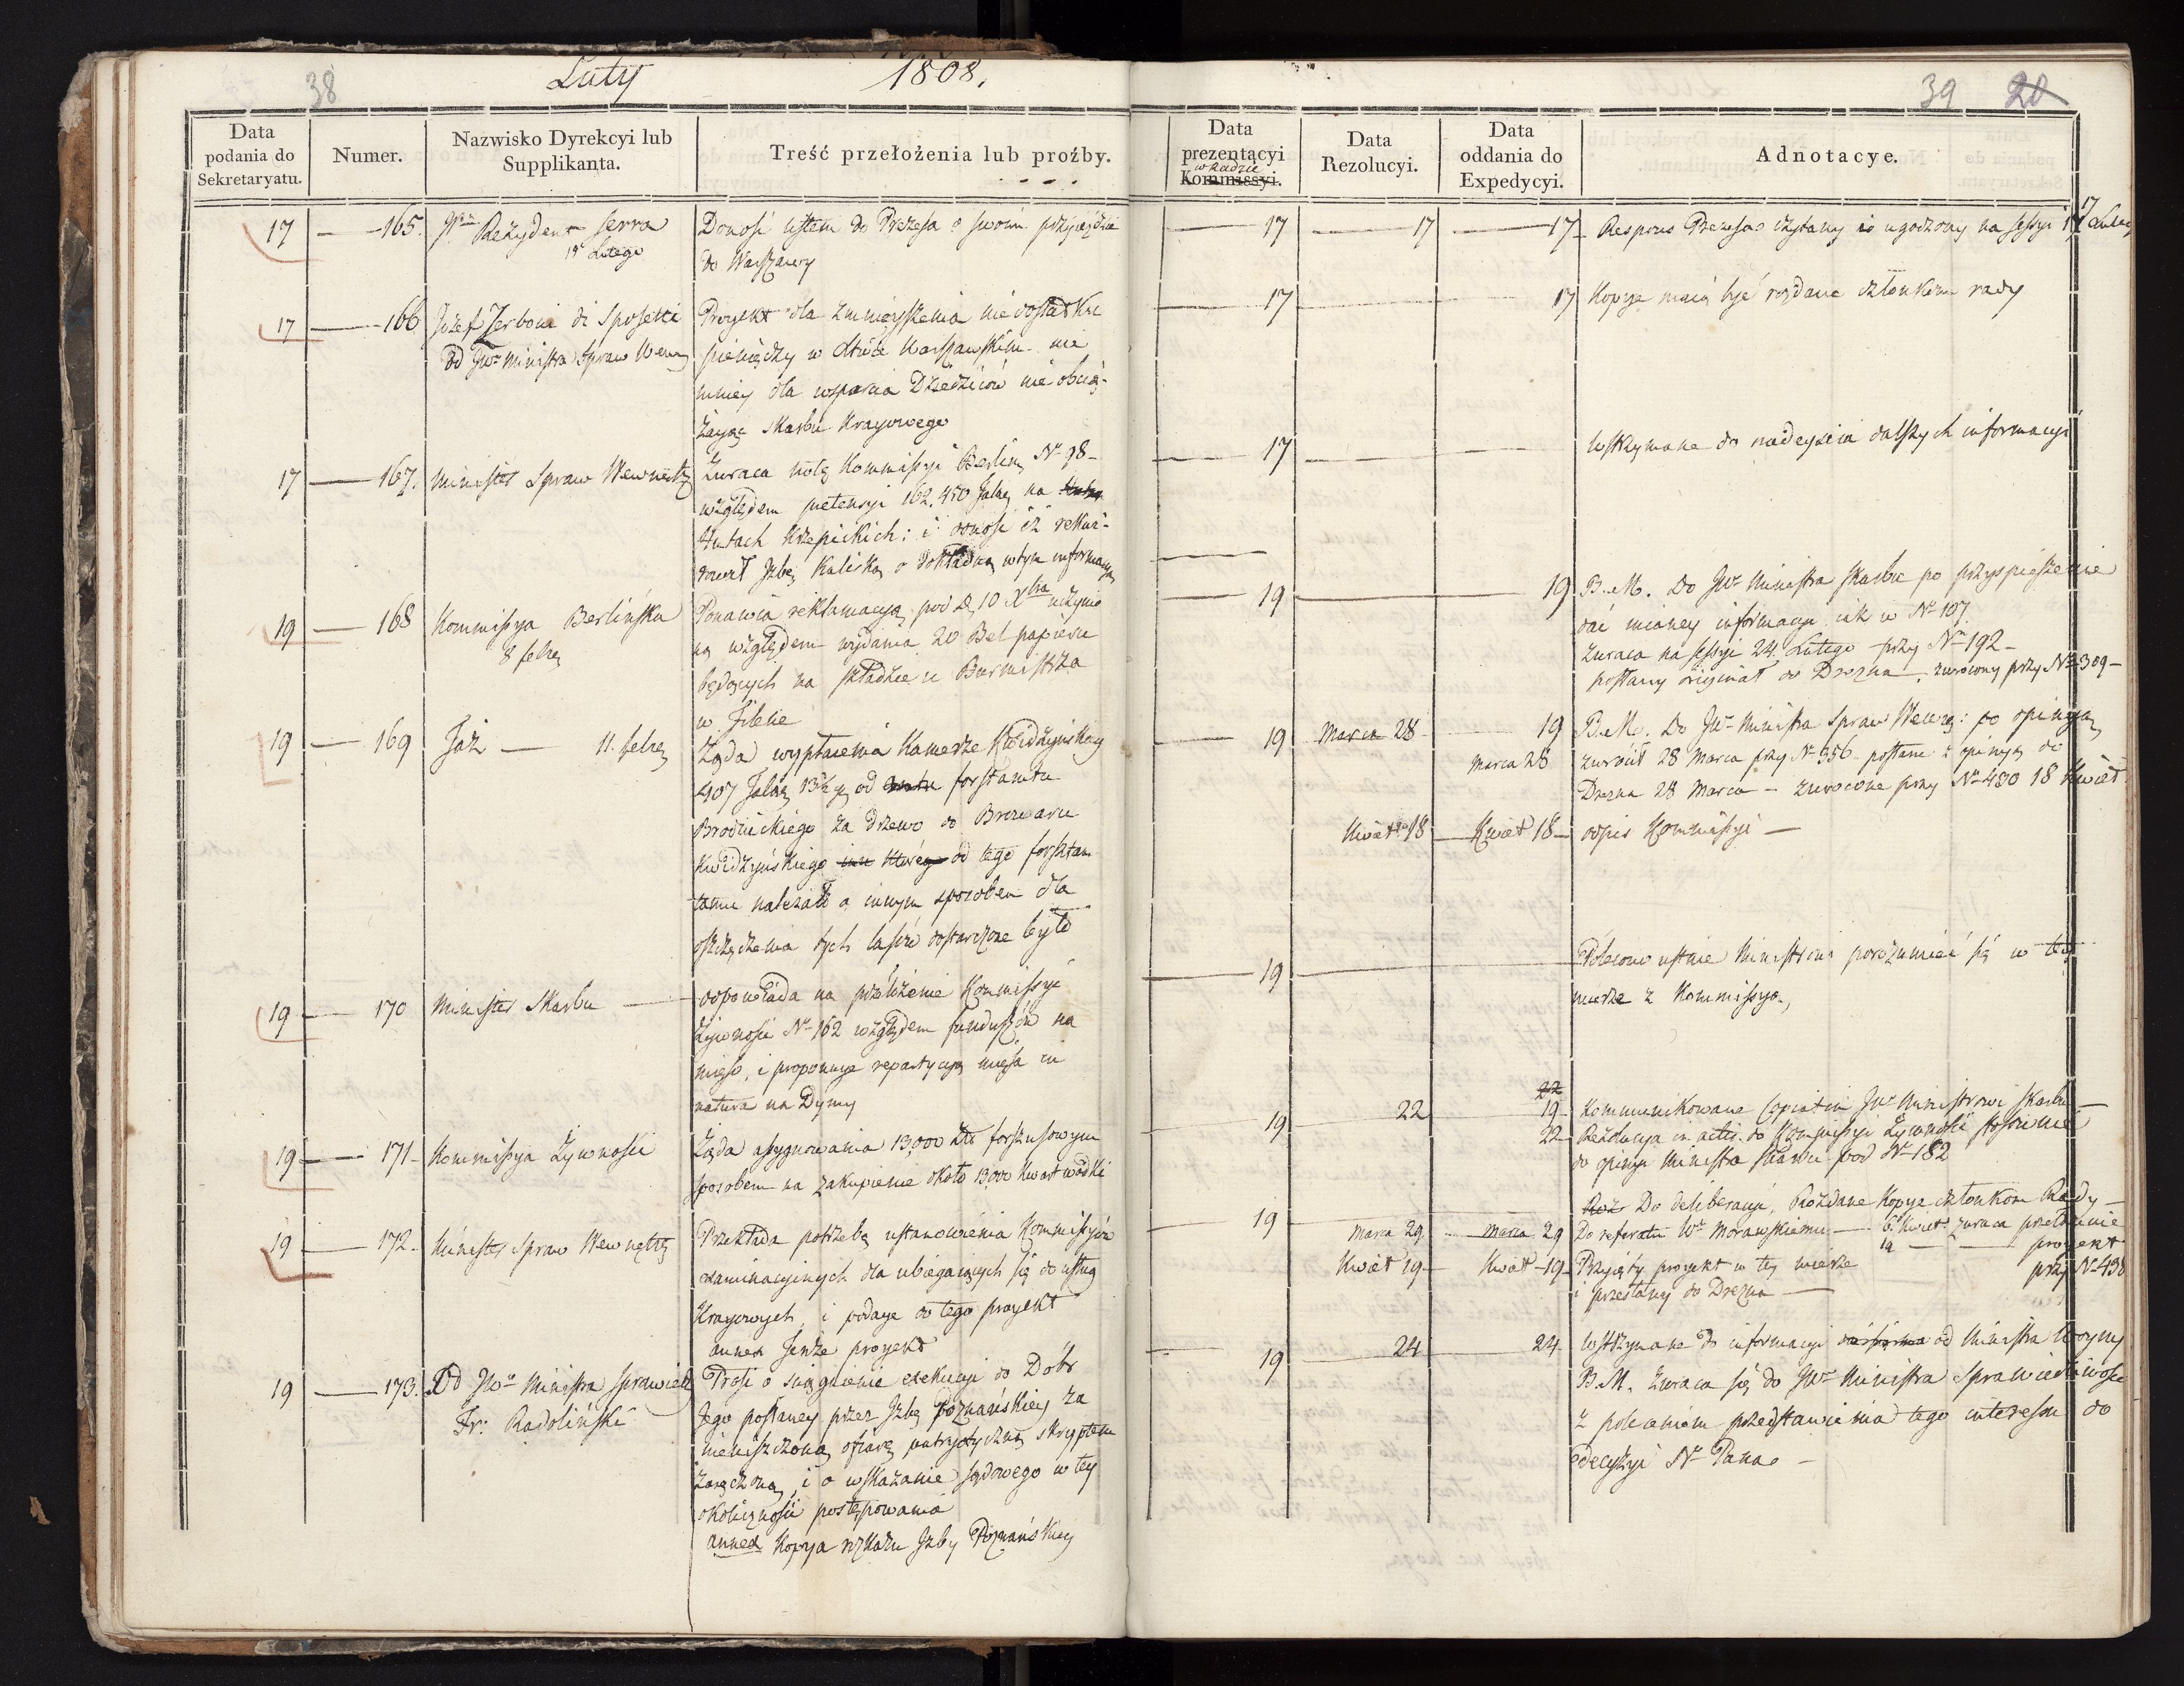 38
Luty 1808.
Data podania do Sekretaryatu.
Numer.
Nazwisko Dyrekcyi lub Supplikanta.
Treść przełożenia lub prożby.
17 — 165. Rezydent Serra
Luttego
Donosi listem do Prezesa o swoim przyjeździe
do Warszawy
17 — 166 Jozef Zerboni di Sposetti
od JW Ministra Spraw Wewn
Proyekt dla zmnieyszenia niedostatku
pieniędzy w Xtwie Warszawskim nie
mniey dla wsparcia Dziedziców nie obcią-
żaiąc skarbu Kraiowego
17 — 167. Minister Spraw Wewnętrz
Zwraca notę Kommissyi Berliń N 98 -
względem pretensyi 162,450 Talar na
Hutach Krzepickich: i donosi iż rekwi-
rował Izbę Kaliską o dokładną w tym informacyą
19 — 168 Kommissya Berlińska
8 febr
Ponawia reklamacyą pod d 10 Xbra uczynio
ną względem wydania 20 Bel papieru
będących na składzie u Burmistrza
w Filehne
19 — 169 Taż — 11. febr
Żąda wypłacenia Kamerze Kwidzyńskiey
407 Talar 13½ g od forstamtu
Brodnickiego za drzewo do Browaru
Kwidzyńskiego od tego forsztam
tamu należało a innym sposobem dla
oszczędzenia tych lasów dostarczone było
19 — 170 Minister Skarbu —
odpowiada na przełożenie Kommissyi
Żywności N 162 względem funduszów na
mięso, i proponuie repartycyą mięsa in
natura na Dymy
19 — 171 Kommissya Żywności
Żąda assygnowania 13,000 Złł forszusowym
sposobem na zakupienie około 13,000 kwart wódki
19 — 172. Minister Spraw Wewnętrz
Przekłada potrzebę ustanowienia Kommissyów
examinacyinych dla ubiegaiących się do usług
Kraiowych, i podaie do tego proyekt
annex Tenże proyekt
19 — 173. Od JW Ministra Sprawiedl
Fr: Radoliński
Prosi o ściągnienie exekucyi do Dóbr
Jego posłaney przez Izbę Poznańskiey za
nieuiszczoną ofiarę patryotyczną skryptem
zaręczoną, i o wskazanie sądowego w tey
okoliczności postępowania
annex Kopya rozkazu Izby Poznańskiey
39 20
Data prezentacyi w Radzie Kommissyi.
Data Rezolucyi.
Data oddania do Expedycyi.
Adnotacye.
17 — 17 — 17 Respons Prezesa czytany i ugodzony na sessyi 17 Lutego
17 — 17 Kopye maią być rozdane członkom rady
17 — Wstrzymane do nadeyścia dalszych informacyi
19 — 19 B. M. Do JW Ministra Skarbu po przyspieszenie
dać mianey informacyi jak w N 107
zwraca na sessyi 24. Lutego przy N 192 -
posłany originał do Drezna, zwrocony przy N 309 -
19 Marca 28 19 B. M. Do JW Ministra Spraw Wewnę: po opinią
Marca 28 zwrócił 28 Marca przy N 356 posłane z opinią do
Drezna 28 Marca - zwrocone przy N 480 18 Kwiet
Kwiet 18 — Kwiet 18 — odpis Kommissyi —
19 — Polecono ustnie Ministrowi porozumieć się w tey
mierze z Kommissyą,
22
19 — 22 19 — Kommunikowane Copiatim JW Ministrowi Skarbu —
22 Rezolucya in actis do Kommissyi Żywności stosownie
do opinii Ministra Skarbu pod N 182
19 — Roz Do deliberacyi, Rozdane Kopye członkom Rady —
Marca 29 — Marca 29 Do referatu W Morawskiemu — 6 Kwiet zwraca przełożenie
19 — proyekt
Kwiet 19 — Kwiet 19 Przyięty proyekt w tey mierze przy N 490
i przesłany do Drezna —
19 — 24 — 24 Wstrzymane do informacyi od Ministra Woyny
B. M. Zwraca się do JW Ministra Sprawiedliwości
z poleceniem przedstawienia tego interessu do
Decyzyi N Pana -